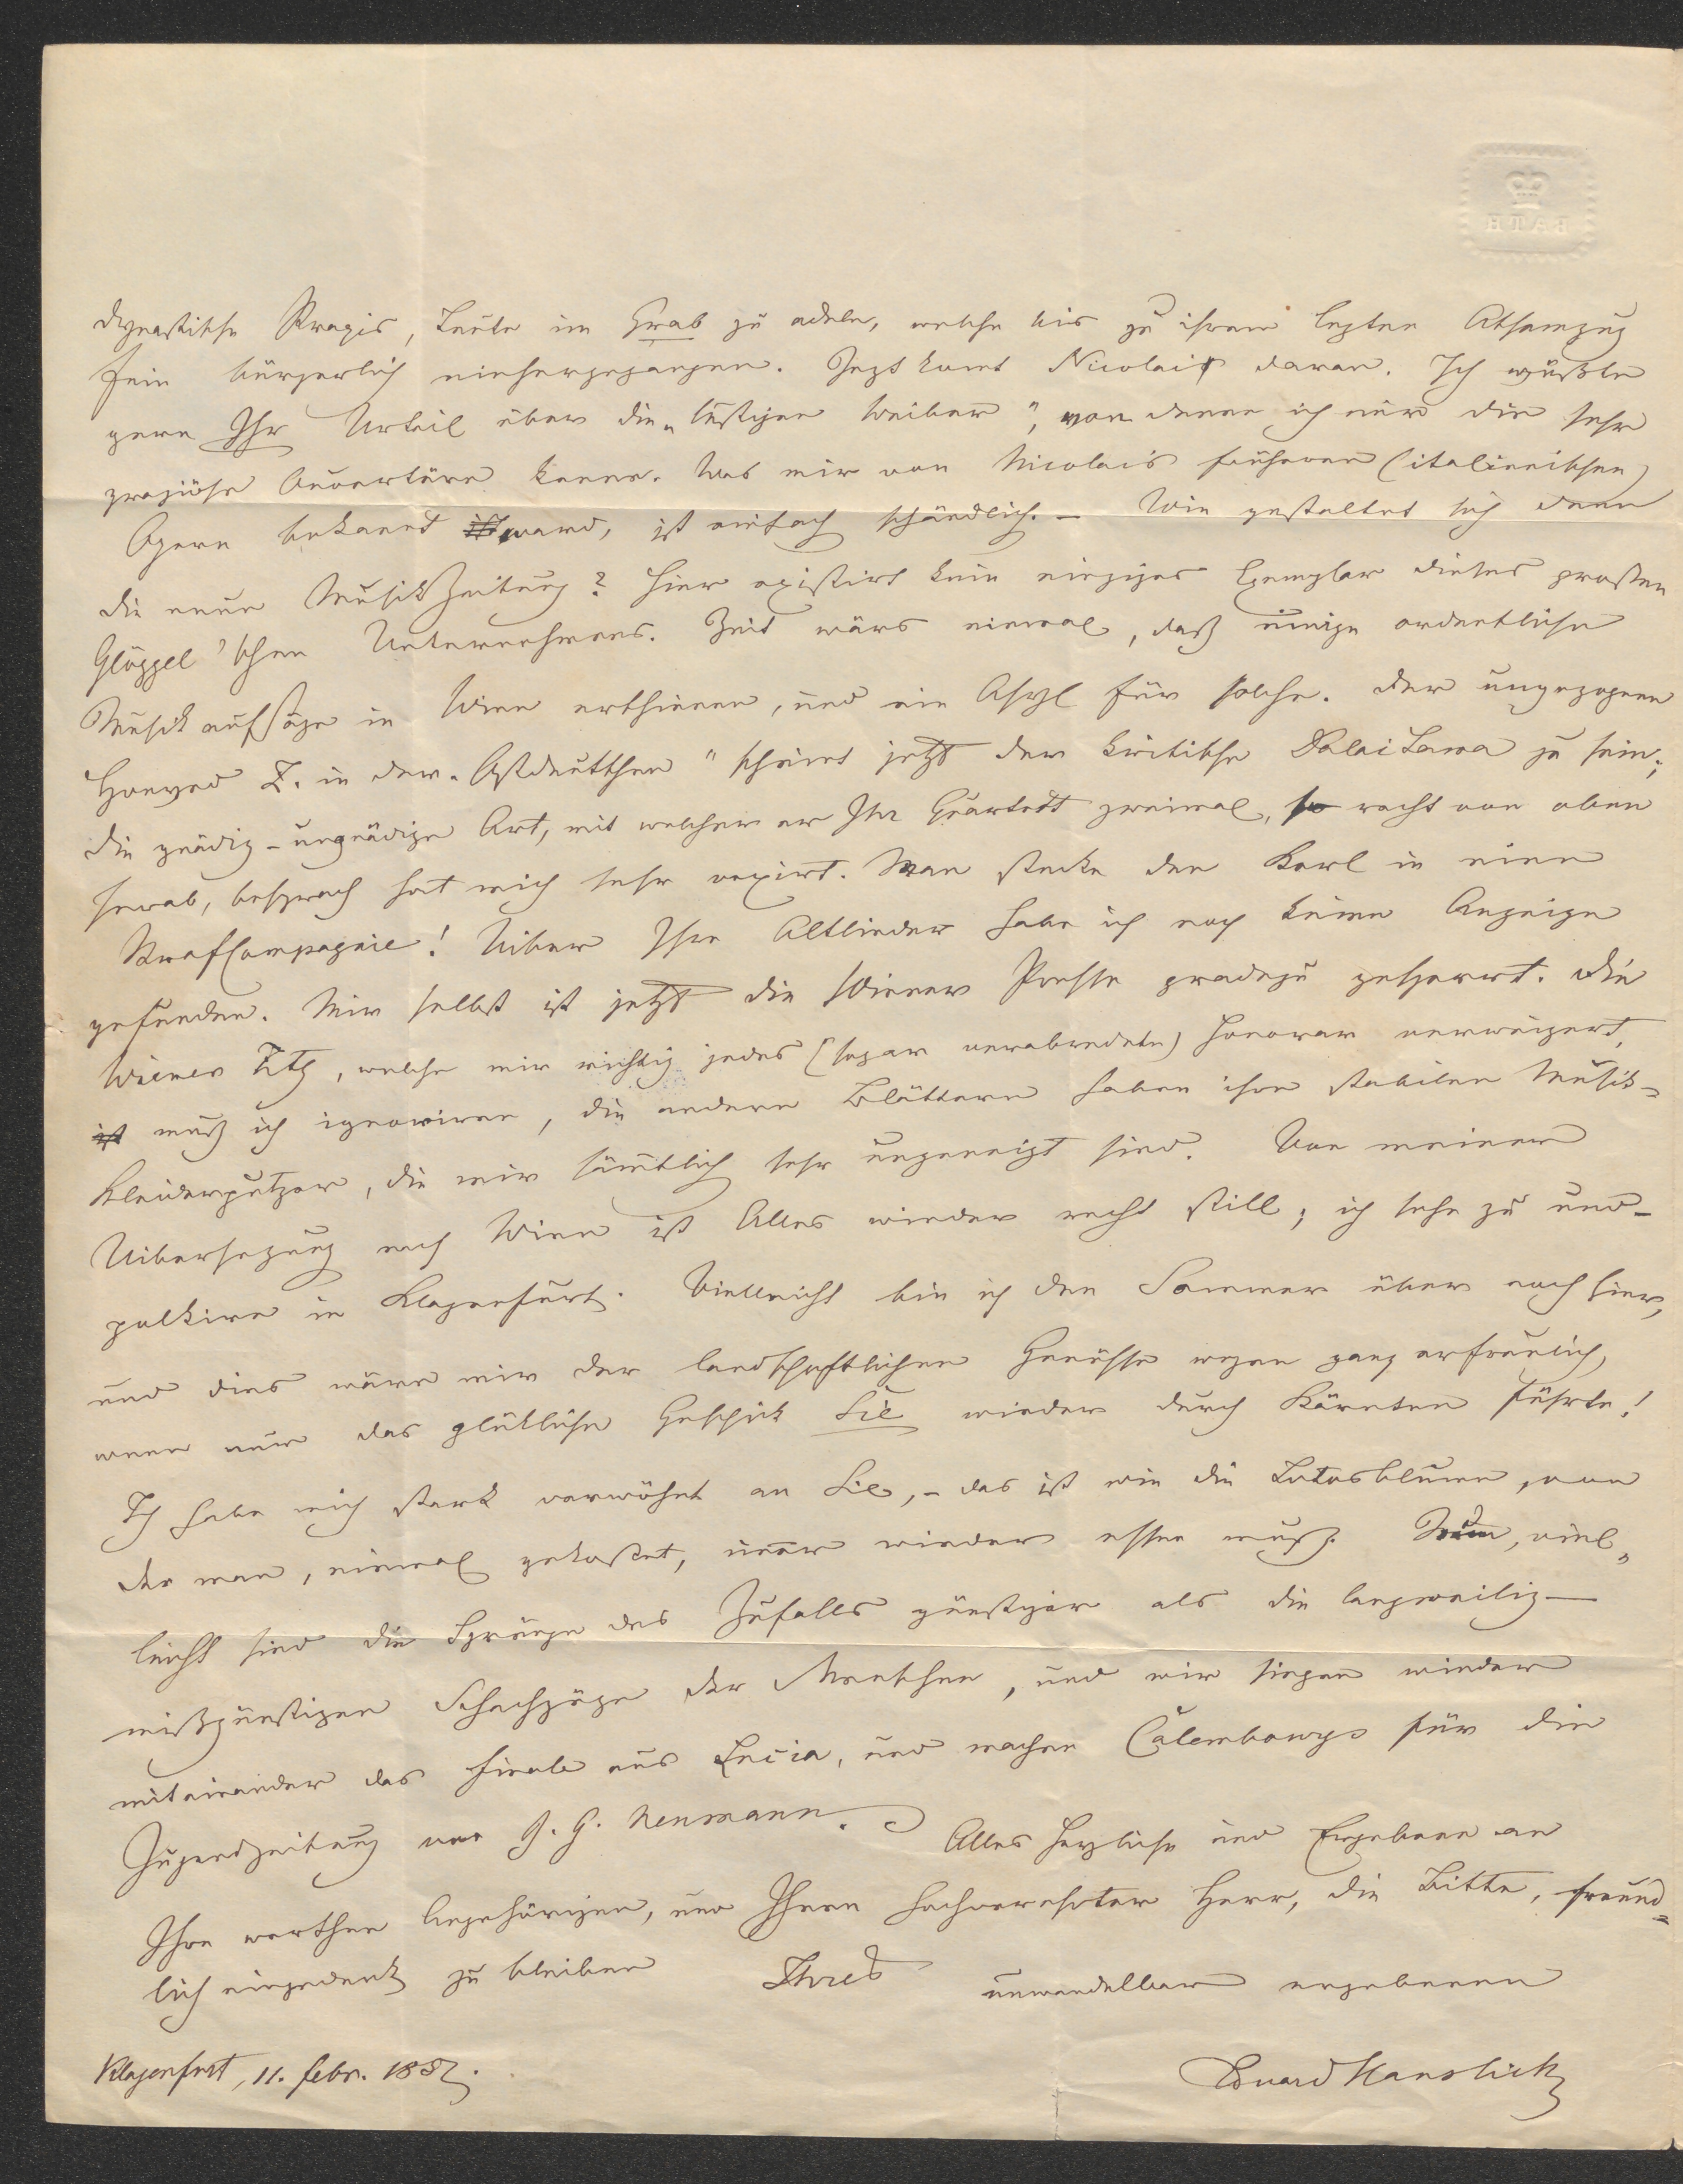 dynastische Praxis, Leute im Grab zu adeln, welche bis zu ihrem lezten Athemzug
fein bürgerlich einhergegangen. Jezt komt Nicolai daran. Ich wüßte
gern Ihr Urteil über die „lustigen Weiber“, von denen ich nur die sehr
graziöse Ouvertüre kenne. Was mir von Nicolai's früheren (italienischen)
Opern bekannt ward, ist einfach schändlich. – Wie gestaltet sich denn
die neue Musikzeitung? Hier existirt kein einziges Exemplar dieses großen
Glöggl'schen Unternehmens. Zeit wärs einmal, daß einige ordentliche
Musikaufsäze in Wien erschienen, und ein Asyl für solche. Der ungezogene
Honved Z. in der „Ostdeutschen“ scheint jetzt der kritische DalaiLama zu sein;
die gnädig-ungnädige Art, mit welcher er Ihr Quartett zweimal, recht von oben
herab, besprach hat mich sehr vexirt. Man stecke den Kerl in eine
StrafCompagnie! Uiber Ihre Altlieder habe ich noch keine Anzeige
gefunden. Mir selbst ist jetzt die Wiener Presse gradezu gesperrt. Die
Wiener Ztg, welche mir richtig jedes (sogar verabredete) Honorar verweigert,
muß ich ignoriren, die andern Blättern haben ihre stabilen Musik-
Kleiderputzer, die mir sämtlich sehr ungeneigt sind. Von meiner
Uibersezung nach Wien ist Alles wieder recht still; ich sehe zu und
in Klagenfurt. Vielleicht bin ich den Sommer über noch hier,
und dies wäre mir der landschaftlichen Genüsse wegen ganz erfreulich,
wenn nur das glükliche Geschick Sie wieder durch Kärnten führte!
Ich habe mich stark verwöhnt an Sie, – das ist wie die Lotosblume, von
der man, einmal gekostet, immer wieder essen muß. Nun, viel„
leicht sind die Sprünge des Zufalls günstiger als die langweilig –
mißgünstigen Schachzüge der Menschen, und wir singen wieder
miteinander das Finale aus Lucia, und machen Calembourgs für die
Jugendzeitung von J. G. Neumann. Alles Herzliche und Ergebene an
Ihre werthen Angehörigen, und Ihnen hochverehrter Herr, die Bitte, freund=
lich eingedenk zu bleiben Ihres unwandelbar ergebenen
Klagenfurt, 11. Febr. 1852.
Eduard Hanslick